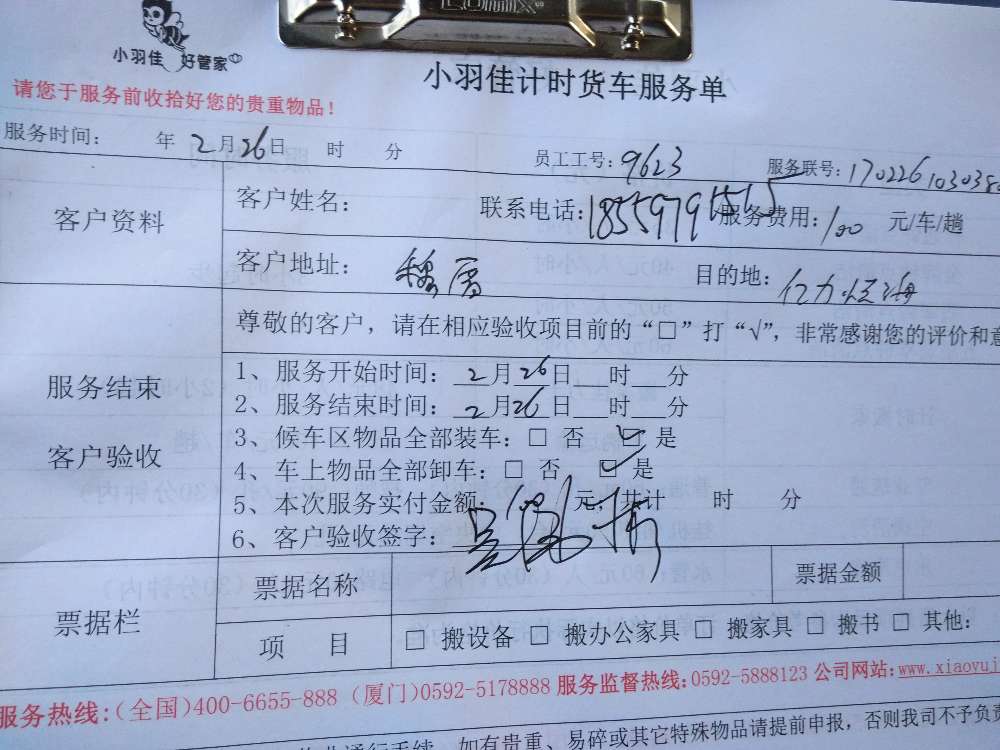 小羽佳 好管家
小羽佳计时货车服务单
请您于服务前收拾好您的贵重物品！
服务时间： 年 2月26日 时 分 员工工号：9623 服务联号：170226103038
客户资料
客户姓名： 联系电话：18559791515 服务费用：100 元/车/趟
客户地址： 目的地：
尊敬的客户，请在相应验收项目前的“□”打“√”，非常感谢您的评价和意
服务结束
客户验收
1、服务开始时间：2月26日 时 分
2、服务结束时间：2月26日 时 分
3、候车区物品全部装车：□ 否 ☑ 是
4、车上物品全部卸车：□ 否 ☑ 是
5、本次服务实付金额：100 元，共计 时 分
6、客户验收签字：
票据栏
票据名称 票据金额
项 目 □ 搬设备 □ 搬办公家具 □ 搬家具 □ 搬书 □ 其他：
服务热线：(全国)400-6655-888 (厦门)0592-5178888 服务监督热线：0592-5888123 公司网站：www.xiaoyuj
如有贵重、易碎或其它特殊物品请提前申报，否则我司不予负责